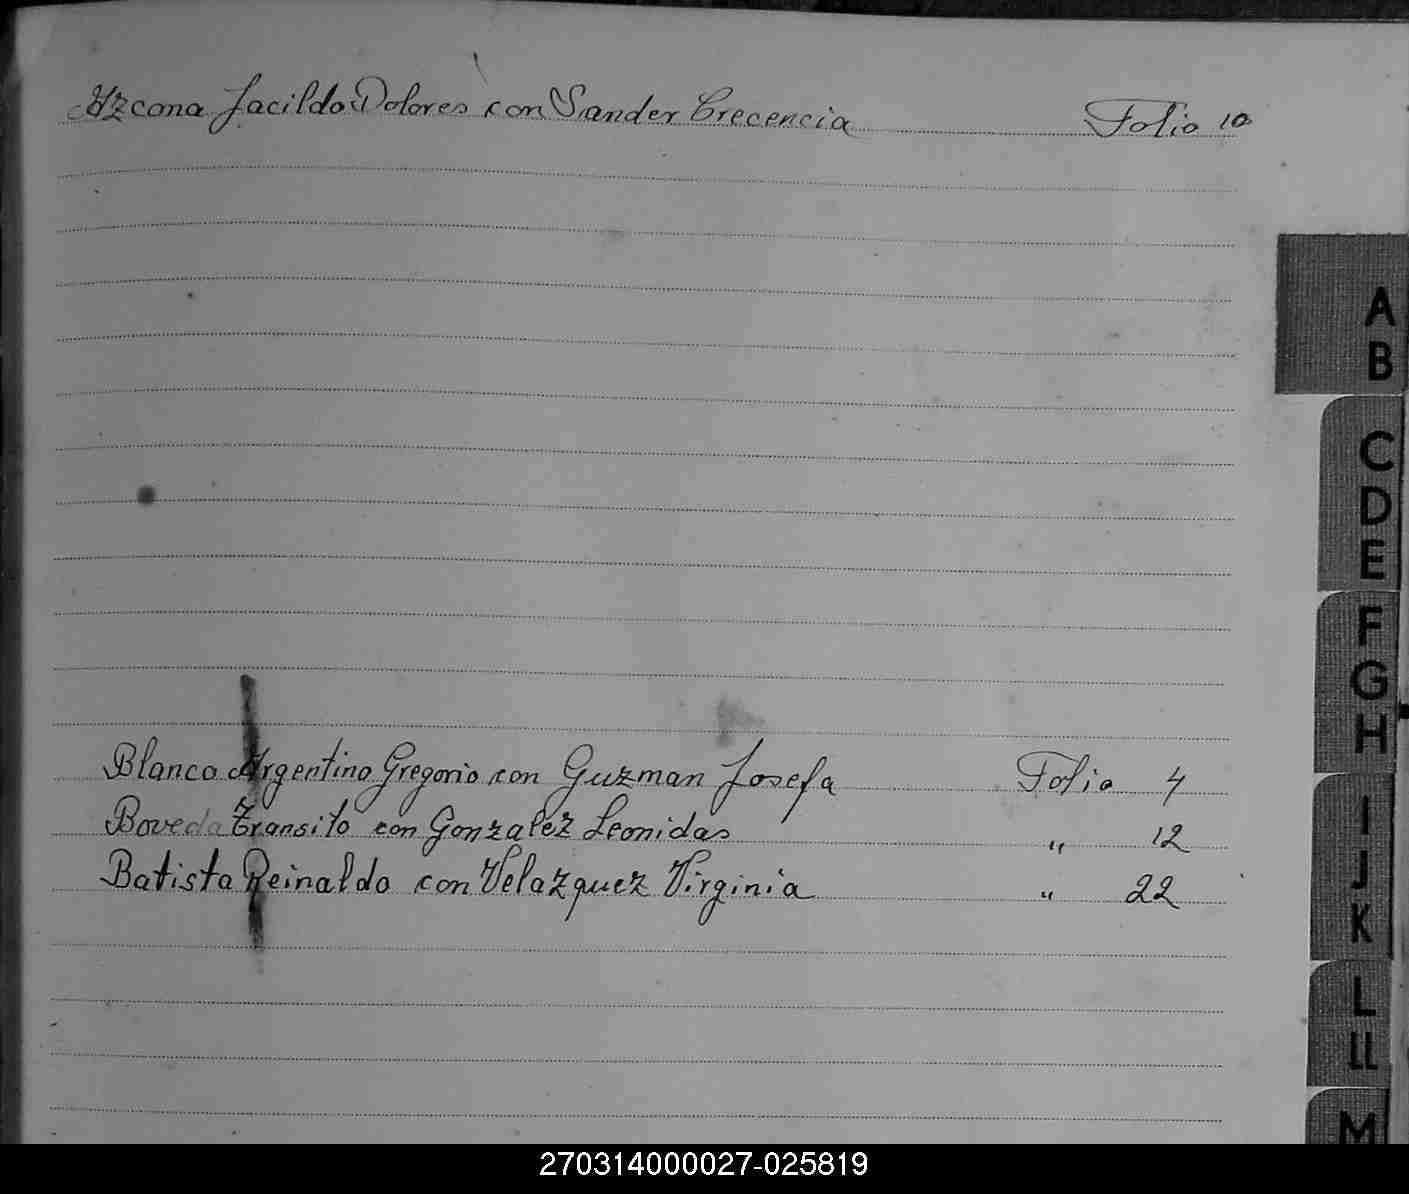 Azcona Jacildo Dolores con Sander Crecencia Folio 10
A
B
C
D
E
F
G
H
Blanco Argentino Gregorio con Guzman Josefa Folio 4
I
Boveda Transito con Gonzalez Leonidas " 12
J
Batista Reinaldo con Velazquez Virginia " 22
K
L
Ll
M
270314000027-025819